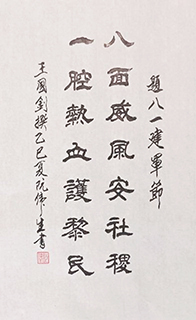 題八一建軍節
八面威風安社稷
一腔熱血護黎民
王國釗撰乙巳夏阮偉生書